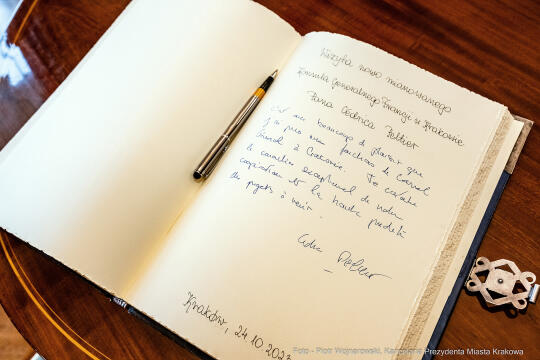 Wizyta nowo mianowanego
Konsula Generalnego Francji w Krakowie
Pana Cédrica Peltier
C'est avec beaucoup de plaisir que
je prends mes fonctions de Consul
Général à Cracovie. Je
le caractère exceptionnel de notre
coopération et la haute
de projets à venir.
Peltier
Kraków, 24 10 2023
Foto - Piotr Wojnarowski, Kancelaria Prezydenta Miasta Krakowa